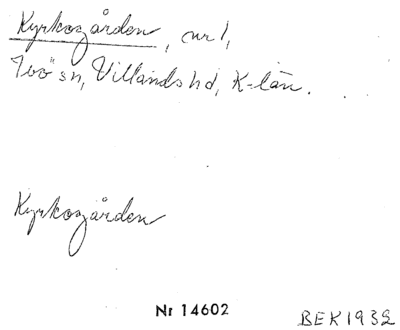 Kyrkogården, nr 1,
Ivö sn, Villands hd, K-län.
Kyrkogården
Nr 14602
BEK 1932